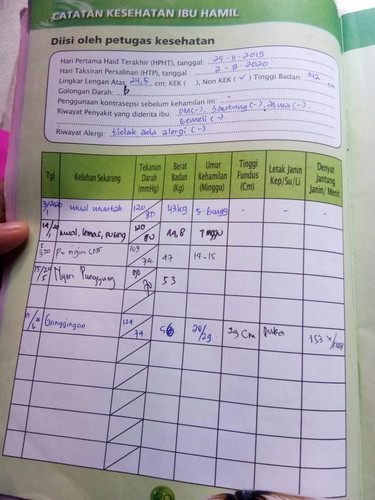 CATATAN KESEHATAN IBU HAMIL
Diisi oleh petugas kesehatan
Hari Pertama Haid Terakhir (HPHT), tanggal: 25-11-2019
Hari Taksiran Persalinan (HTP), tanggal : 2-9-2020
Lingkar Lengan Atas: 24,5 cm; KEK ( ), Non KEK (✓) Tinggi Badan: cm
Golongan Darah: B
Penggunaan kontrasepsi sebelum kehamilan ini: -
Riwayat Penyakit yang diderita ibu: DM(-), Jantung(-), asma(-).
Gemeli (-)
Riwayat Alergi: tidak ada alergi (-)
Tgl Keluhan Sekarang Tekanan Darah (mmHg) Berat Badan (Kg) Umur Kehamilan (Minggu) Tinggi Fundus (Cm) Letak Janin Kep/Su/Li Denyut Jantung Janin/ Menit
mual muntah 120/80 43kg 5-6 - - -
mual, lemas, pusing 7 mggu
109/74 47 14-15
Nyeri Punggung 53
124/74 28/29 29 Cm puka 153 x/